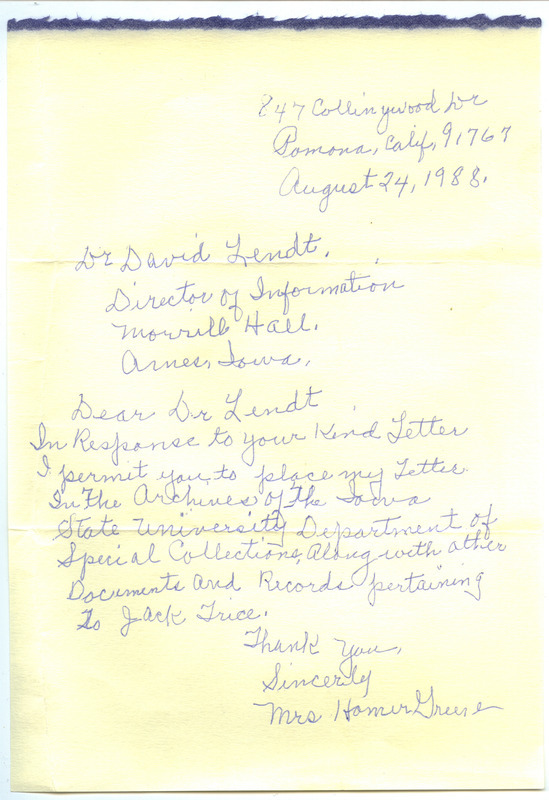 847 Collingwood Dr
Pomona, Calif, 91767
August 24, 1988.
Dr David Lendt.
Director of Information
Morrill Hall.
Ames, Iowa,
Dear Dr Lendt,
In Response to your Kind Letter
I permit you, to place my Letter
In The Archives of The Iowa
State University Department of
Special Collections, Along with other
Documents And Records pertaining
To Jack Trice.
Thank You,
Sincerily
Mrs Homer Greene